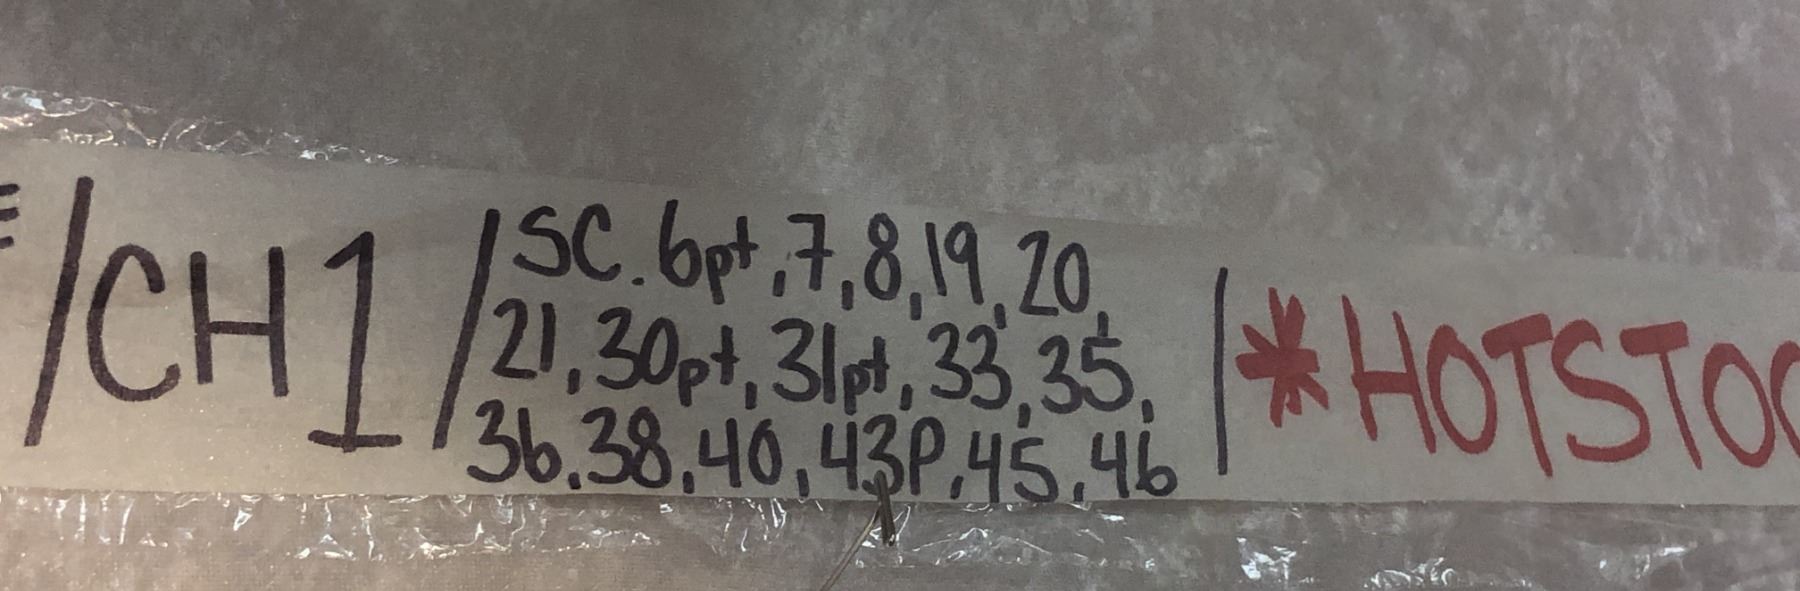 /CH1/ SC. 6pt, 7, 8, 19, 20,
21, 30pt, 31pt, 33, 35,
36, 38, 40, 43P, 45, 46
| *HOTSTOC